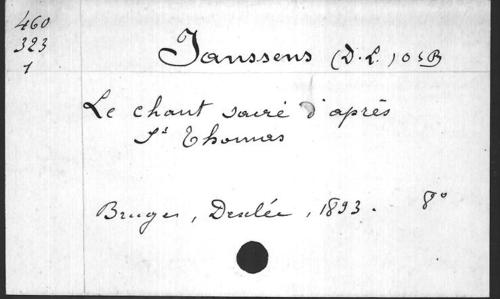 460
323
1
Janssens (D. L.) OSB
Le chant sacré d'après
St Thomas
Bruges, Desclée, 1893. 8°